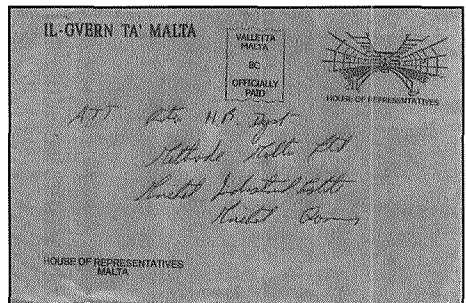 IL-GVERN TA' MALTA
VALLETTA
MALTA
BC
OFFICIALLY
PAID
HOUSE OF REPRESENTATIVES
ATT H.R. Dept
Methode Malta Ltd
Industrial Estate
HOUSE OF REPRESENTATIVES
MALTA